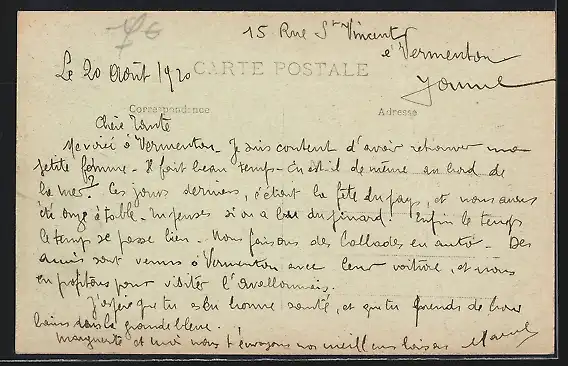 15 Rue St Vincent
à Vermenton
Yonne
Le 20 Août 1920
CARTE POSTALE
Correspondance Adresse
Chère Tante
Me voici à Vermenton. Je suis content d'avoir retrouver ma
petite femme. Il fait beau temps. En est il de même au bord de
la mer? Ces jours derniers, c'était la fête du pays, et nous avons
été onze à table. Tu penses si on a bu du pinard! Enfin le temps
le temps se passe bien. Nous faisons des ballades en auto. Des
amis sont venus à Vermenton avec leur voiture, et nous
en profitons pour visiter l'avallonnais.
J'espère que tu es en bonne santé, et que tu prends de bons
bains dans la grande bleue.
Marguerite et moi nous t'envoyons nos meilleurs baisers Marcel